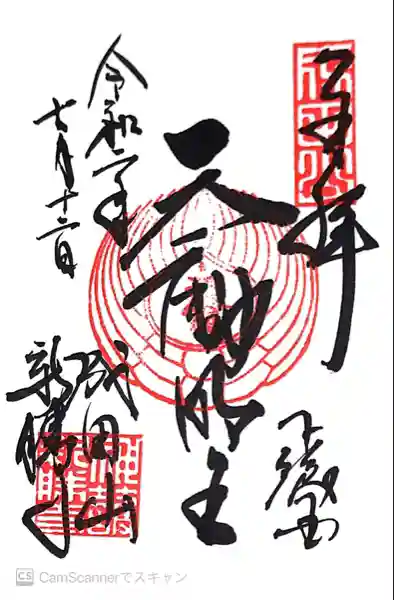 奉拝
不動明王
令和二年
七月十二日
成田山
新勝寺
CS CamScannerでスキャン